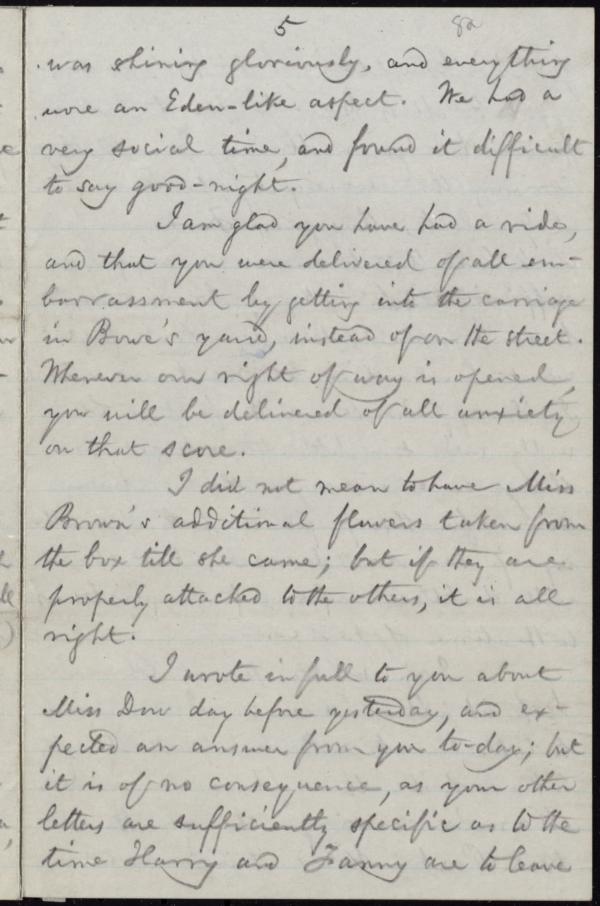 5
82
was shining gloriously, and everything
wore an Eden-like aspect. We had a
very social time, and found it difficult
to say good-night.
I am glad you have had a ride,
and that you were delivered of all em-
barrassment by getting into the carriage
in Bowe's yard, instead of on the street.
Whenever our right of way is opened,
you will be delivered of all anxiety
on that score.
I did not mean to have Miss
Brown's additional flowers taken from
the box till she came; but if they are
properly attached to the others, it is all
right.
I wrote in full to you about
Miss Dow day before yesterday, and ex-
pected an answer from you to-day; but
it is of no consequence, as your other
letters are sufficiently specific as to the
time Harry and Fanny are to leave